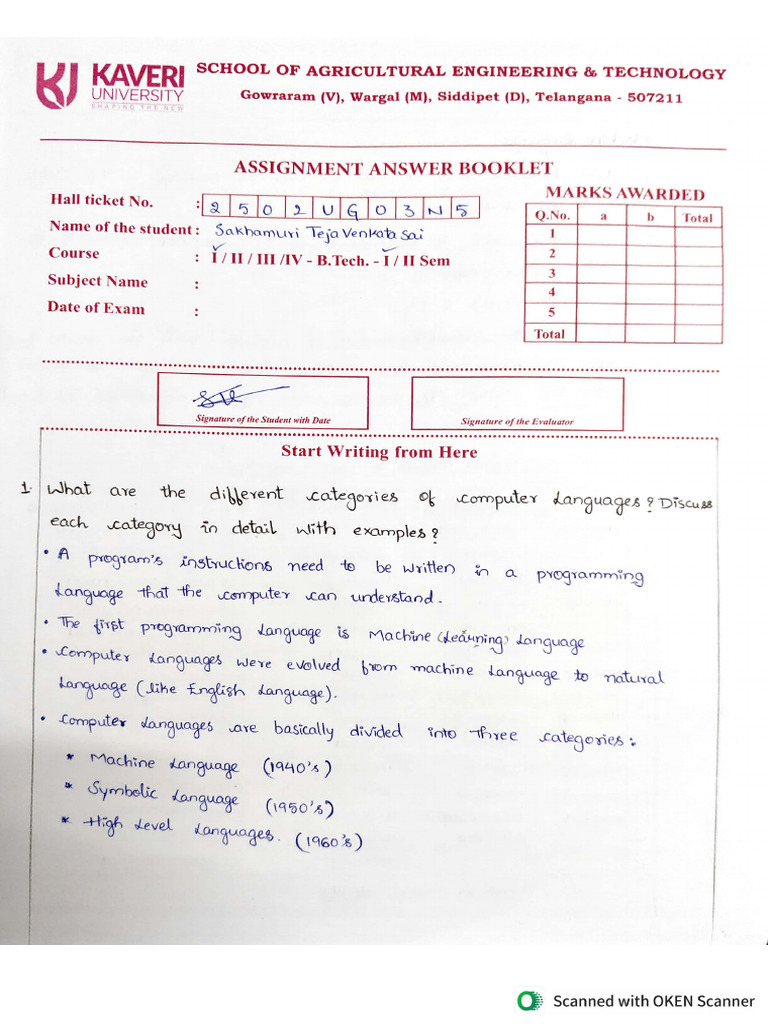 KAVERI
UNIVERSITY
SHAPING THE NEW
SCHOOL OF AGRICULTURAL ENGINEERING & TECHNOLOGY
Gowraram (V), Wargal (M), Siddipet (D), Telangana - 507211
ASSIGNMENT ANSWER BOOKLET
Hall ticket No. : 2502UG03N5
Name of the student : Sakhamuri Teja Venkata Sai
Course : I / II / III /IV - B.Tech. - I / II Sem
Subject Name :
Date of Exam :
MARKS AWARDED
Q.No. a b Total
1
2
3
4
5
Total
Signature of the Student with Date
Signature of the Evaluator
Start Writing from Here
1. What are the different categories of computer languages? Discuss
each category in detail with examples?
• A program's instructions need to be written in a programming
Language that the computer can understand.
• The first programming language is Machine (Learning) Language
• Computer languages were evolved from machine language to natural
Language (like English Language).
• Computer languages are basically divided into three categories:
* Machine Language (1940's)
* Symbolic Language (1950's)
* High Level Languages. (1960's)
Scanned with OKEN Scanner